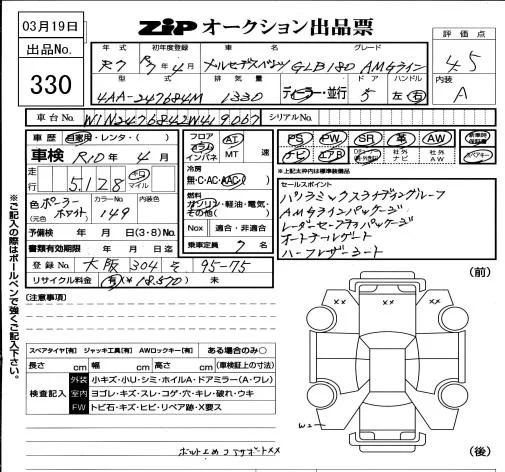 03月19日
ZiP オークション出品票
出品No.
330
年式 初年度登録 車名 グレード
R7 R7年4月 メルセデスベンツ GLB180 AMGライン
評価点
4.5
型式 排気量 ドア ハンドル
4AA-247684M 1330 ディーラー・並行 5 左・右
内装
A
車台No. W1N2476842W419067 シリアルNo.
車歴 自家用・レンタ・( )
車検 R10年4月
走行 5,128 キロ マイル
色(元色) ポーラーホワイト カラーNo. 149 内装色
予備検 年 月 日(3・8)No.
書類有効期限 年 月 日迄
フロア コラム インパネ AT MT 速
冷房 無・C・AC・AAC・( )
燃料 ガソリン・軽油・電気・その他( )
Nox 適合・非適合
乗車定員 7名
PS PW SR 革 AW 新車時保証書
ナビ エアB 社外ナビ 社外AW スペアキー
※上記太枠内は標準装備品
登録No. 大阪 304 そ 95-75
リサイクル料金 有(¥18,570) 未
セールスポイント
パノラミックスライディングルーフ
AMGラインパッケージ
レーダーセーフティパッケージ
オートテールゲート
ハーフレザーシート
※ご記入の際はボールペンで強くご記入下さい。
(注意事項)
(前)
××
××
スペアタイヤ[有] ジャッキ工具[有] AWロックキー[有] ある場合のみ○
長さ cm 幅 cm 高さ cm (車検証上の寸法)
検査記入
外装 小キズ・小リ・シミ・ホイルA・ドアミラー(A・ワレ)
室内 ヨゴレ・キズ・スレ・コゲ・穴・キレ・破れ・ウキ
FW トビ石・キズ・ヒビ・リペア跡・X要ス
W2
(後)